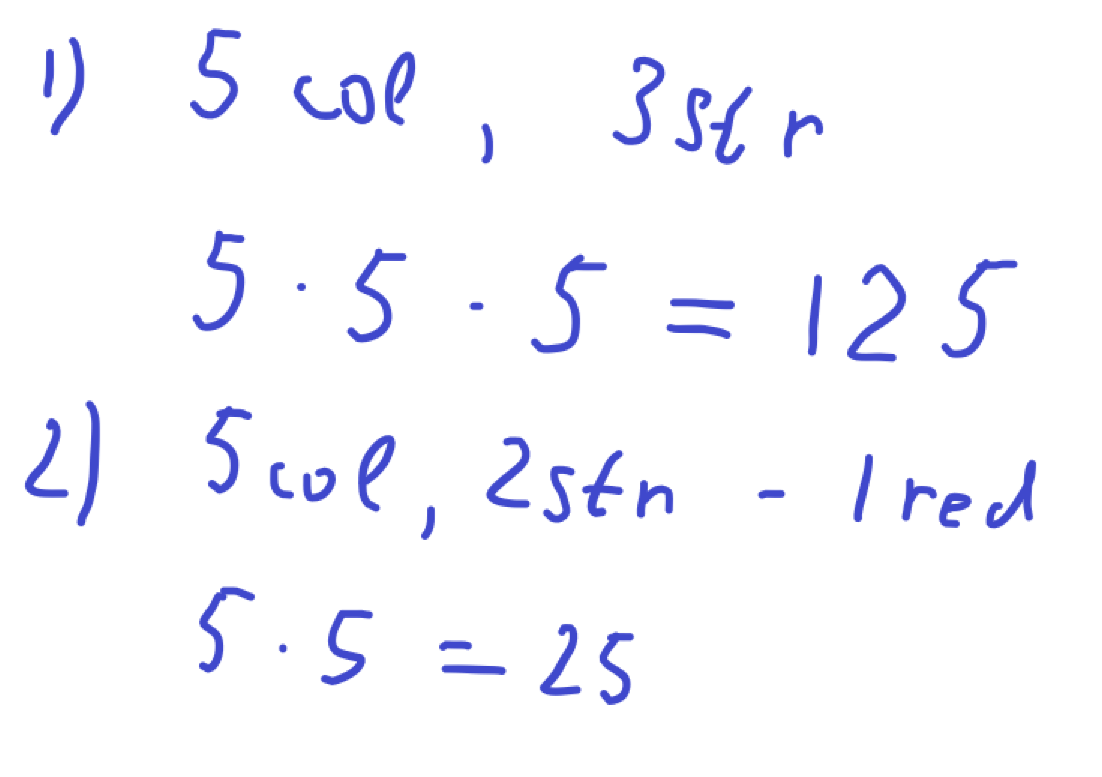 1) 5 col, 3str
5 · 5 · 5 = 125
2) 5 col, 2stn - 1 red
5 · 5 = 25